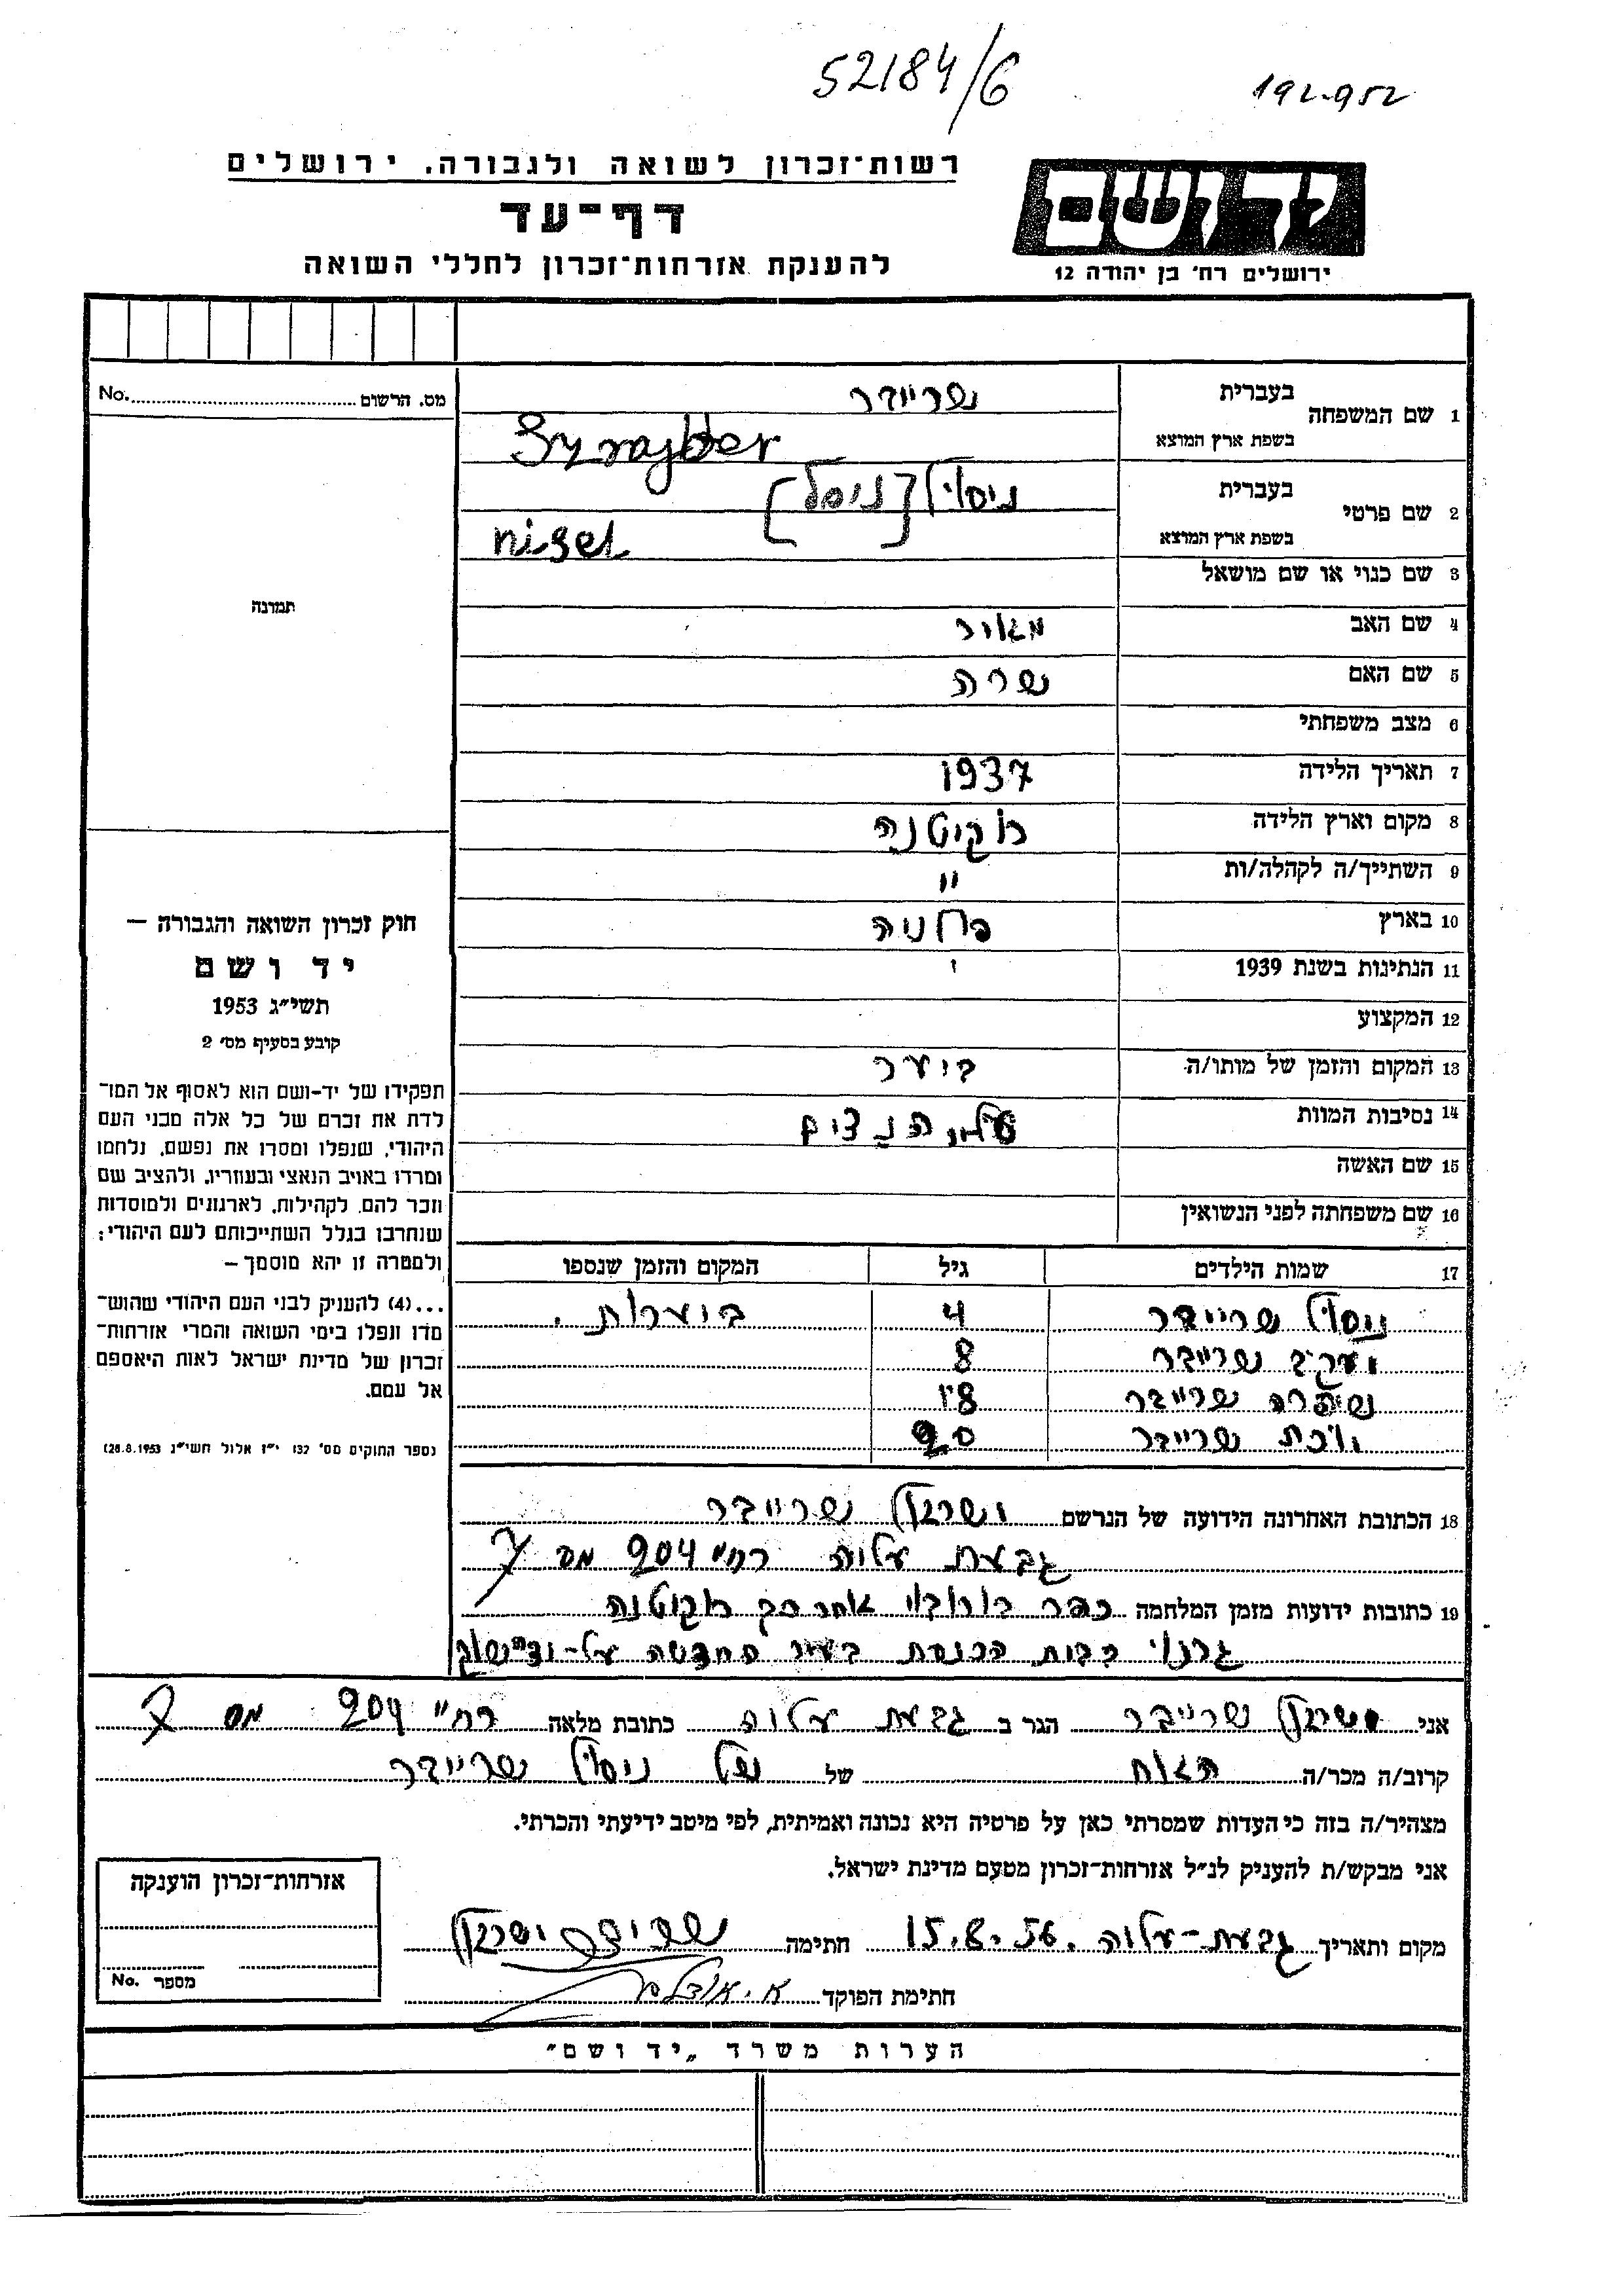 52184/6
192.952
רשות־זכרון לשואה ולגבורה, ירושלים
דף־עד
להענקת אזרחות־זכרון לחללי השואה
יד ושם
ירושלים רח' בן יהודה 12
מס. הרשום No.
1 שם המשפחה בעברית שריידר
בשפת ארץ המוצא Sznajder
2 שם פרטי בעברית ניסל [ניסל]
בשפת ארץ המוצא nisel
3 שם כנוי או שם מושאל
4 שם האב מאיר
5 שם האם שרה
6 מצב משפחתי
7 תאריך הלידה 1937
8 מקום וארץ הלידה רוקיטנה
9 השתייך/ה לקהלה/ות "
10 בארץ
11 הנתינות בשנת 1939
12 המקצוע
13 המקום והזמן של מותו/ה ביער
14 נסיבות המוות הנצים
15 שם האשה
16 שם משפחתה לפני הנשואין
17 שמות הילדים גיל המקום והזמן שנספו
ניסל שריידר 4 ביערות.
יעקב שריידר 8
שפרה שריידר 18
שריידר 20
18 הכתובת האחרונה הידועה של הנרשם ישראל שריידר
גבעת עליה רח' 204 מס 7
19 כתובות ידועות מזמן המלחמה כפר אחר כך רוקיטנה
אני ישראל שריידר הגר ב גבעת עליה כתובת מלאה רח' 204 מס 7
קרוב/ה מכר/ה האח של של ניסל שריידר
מצהיר/ה בזה כי העדות שמסרתי כאן על פרטיה היא נכונה ואמיתית, לפי מיטב ידיעתי והכרתי.
אני מבקש/ת להעניק לנ"ל אזרחות־זכרון מטעם מדינת ישראל.
מקום ותאריך גבעת-עליה 15.8.56. חתימה שריידר ישראל
חתימת הפוקד
תמונה
חוק זכרון השואה והגבורה —
יד ושם
תשי"ג 1953
קובע בסעיף מס' 2
תפקידו של יד-ושם הוא לאסוף אל המו־
לדת את זכרם של כל אלה מבני העם
היהודי, שנפלו ומסרו את נפשם, נלחמו
ומרדו באויב הנאצי ובעוזריו, ולהציב שם
וזכר להם, לקהילות, לארגונים ולמוסדות
שנחרבו בגלל השתייכותם לעם היהודי;
ולמטרה זו יהא מוסמך —
...(4) להעניק לבני העם היהודי שהוש־
מדו ונפלו בימי השואה והמרי אזרחות־
זכרון של מדינת ישראל לאות היאספם
אל עמם.
(ספר החוקים מס' 132 י"ז אלול תשי"ג 28.8.1953)
אזרחות־זכרון הוענקה
מספר No.
הערות משרד „יד ושם"